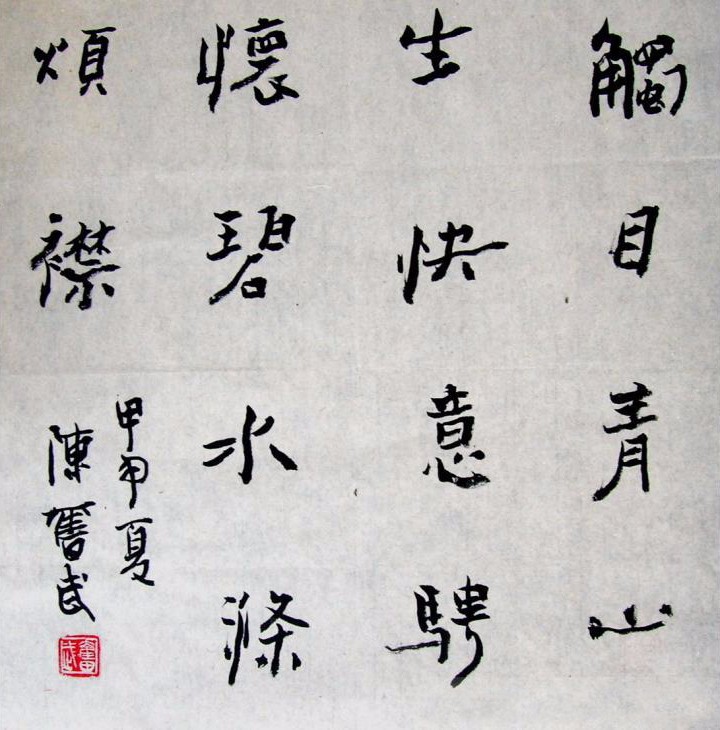 觸目青山
生快意騁
懷碧水滌
煩襟
甲申夏
陳奮武
奮武